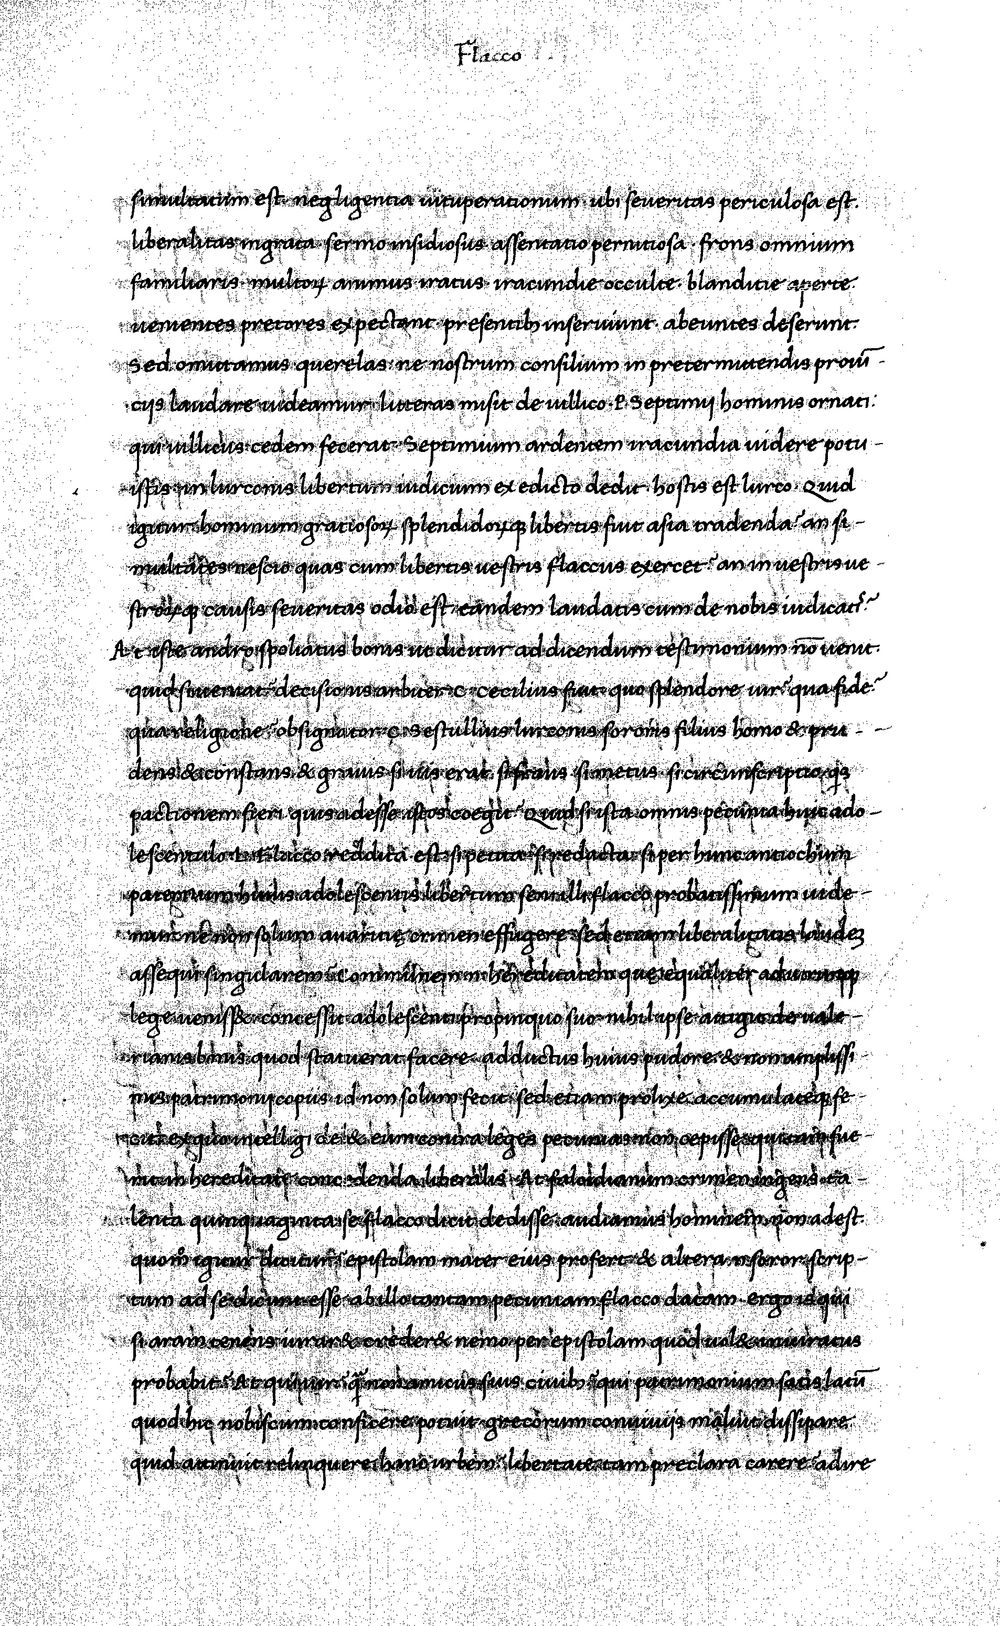 Flacco
simultatum est. negligentia uituperationum. ubi seueritas periculosa est.
liberalitas ingrata. sermo insidiosus. assentatio pernitiosa. frons omnium
familiaris. multoꝝ animus iratus. iracundie occulte. blanditie aperte.
uenientes pretores expectant. presentibꝫ inseruiunt. abeuntes deserunt.
Sed omittamus querelas. ne nostrum consilium in pretermittendis prouī-
cijs laudare uideamur. litteras misit de uillico. P. Septimij hominis ornati:
qui uillicus cedem fecerat. Septimium ardentem iracundia uidere potu-
istis in lurconis libertum iudicium ex edicto dedit. hostis est lurco. Quid
igitur hominum gratiosoꝝ splendidoꝝqꝫ libertis fuit asia tradenda? an si-
multates nescio quas cum libertis uestris flaccus exercet? an in uestris ue-
stroꝝqꝫ causis seueritas odio est. eandem laudatis cum de nobis iudicatis?
At iste andro spoliatus bonis ut dicitur ad dicendum testimonium nō uenit.
quid si ueniat? decisionis arbiter C. cecilius fuit. quo splendore uir? qua fide?
qua religione? obsignator C. Sestullius lurconis sororis filius homo & pru-
dens & constans & grauis si uis erat. si fraus si metus si circūnscriptio. quis
pactionem fieri quis adesse istos coegit? Quid si ista omnis pecunia huic ado-
lescentulo L. Flacco reddita est. si petita si redacta. si per hunc antiochum
paternum huius adolescentis libertum seni illi flacco probatissimum uide-
mur ne non solum auaritię crimen effugere. sed etiam liberalitatis laudeꝫ
assequi singularem? Communem .n. hereditatem que equaliter ad utrumqꝫ
lege uenisset concessit adolescenti propinquo suo. nihil ipse attigit de uale-
rianis bonis. quod statuerat facere. adductus huius pudore & non amplissi-
mis patrimonij copiis. id non solum fecit. sed etiam prolixe accumulateqꝫ fe-
cit. ex quo intelligi debet eum contra leges pecunias non cepisse. qui tam fue-
rit in hereditate concedenda liberalis. At falcidianum crimen ingens est. ta-
lenta quinquaginta se flacco dicit dedisse. audiamus hominem. non adest.
quomo igitur dicitur? epistolam mater eius profert & alteram soror. scrip-
tum ad se dicunt esse ab illo tantam pecuniam flacco datam. ergo is qui
si aram tenens iuraret crederet nemo. per epistolam quod uolet iniuratus
probabit? At qui uir? qꝫ non amicus suis ciuibꝫ? qui patrimonium satis latū
quod hic nobiscum conficere potuit. grecorum conuiuijs maluit dissipare.
quid attinuit relinquere hanc urbem? libertate tam preclara carere? adire